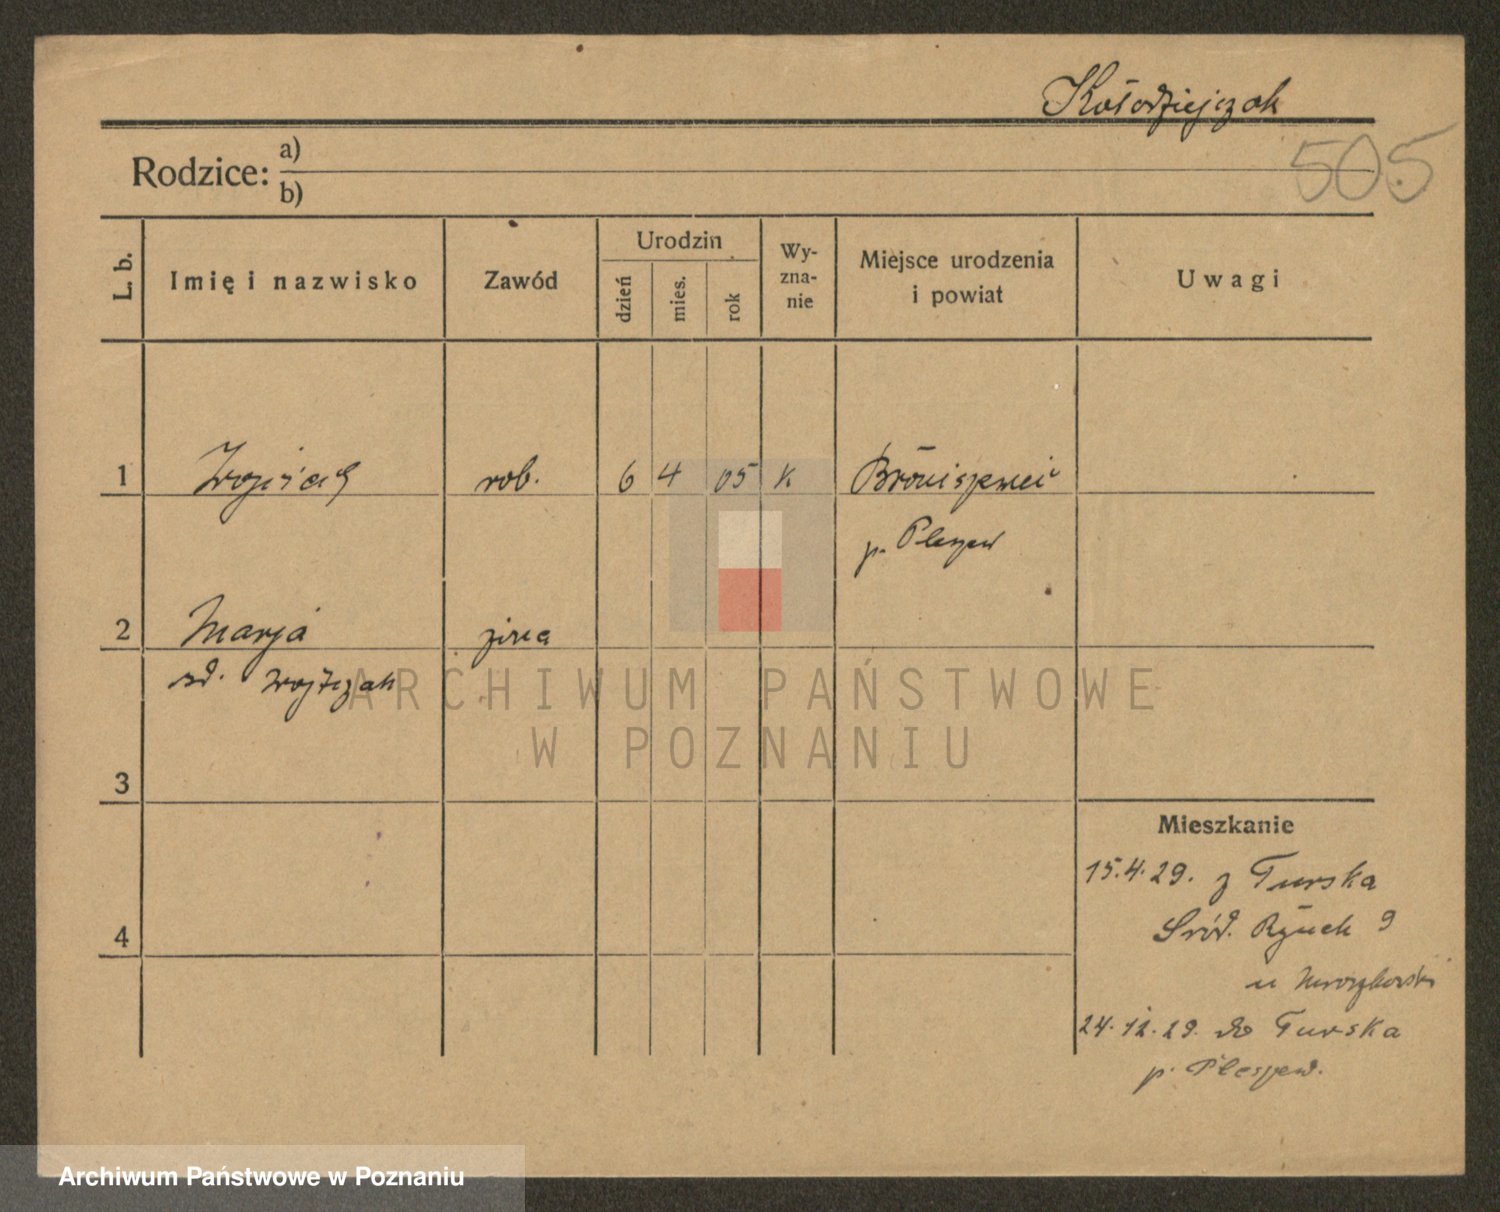 Kołodziejczak
505
Rodzice: a)
b)
L. b.
Imię i nazwisko
Zawód
Urodzin
dzień
mies.
rok
Wy-
zna-
nie
Miejsce urodzenia
i powiat
Uwagi
1 Wojciech rob. 6 4 05 K Broniszewic
p. Pleszew
2 Marja żona
zd. Wojtczak
ARCHIWUM PAŃSTWOWE
W POZNANIU
3
Mieszkanie
15.4.29. z Turska
4
Śród. Rynek 9
u
24.12.29. do Turska
p. Pleszew.
Archiwum Państwowe w Poznaniu